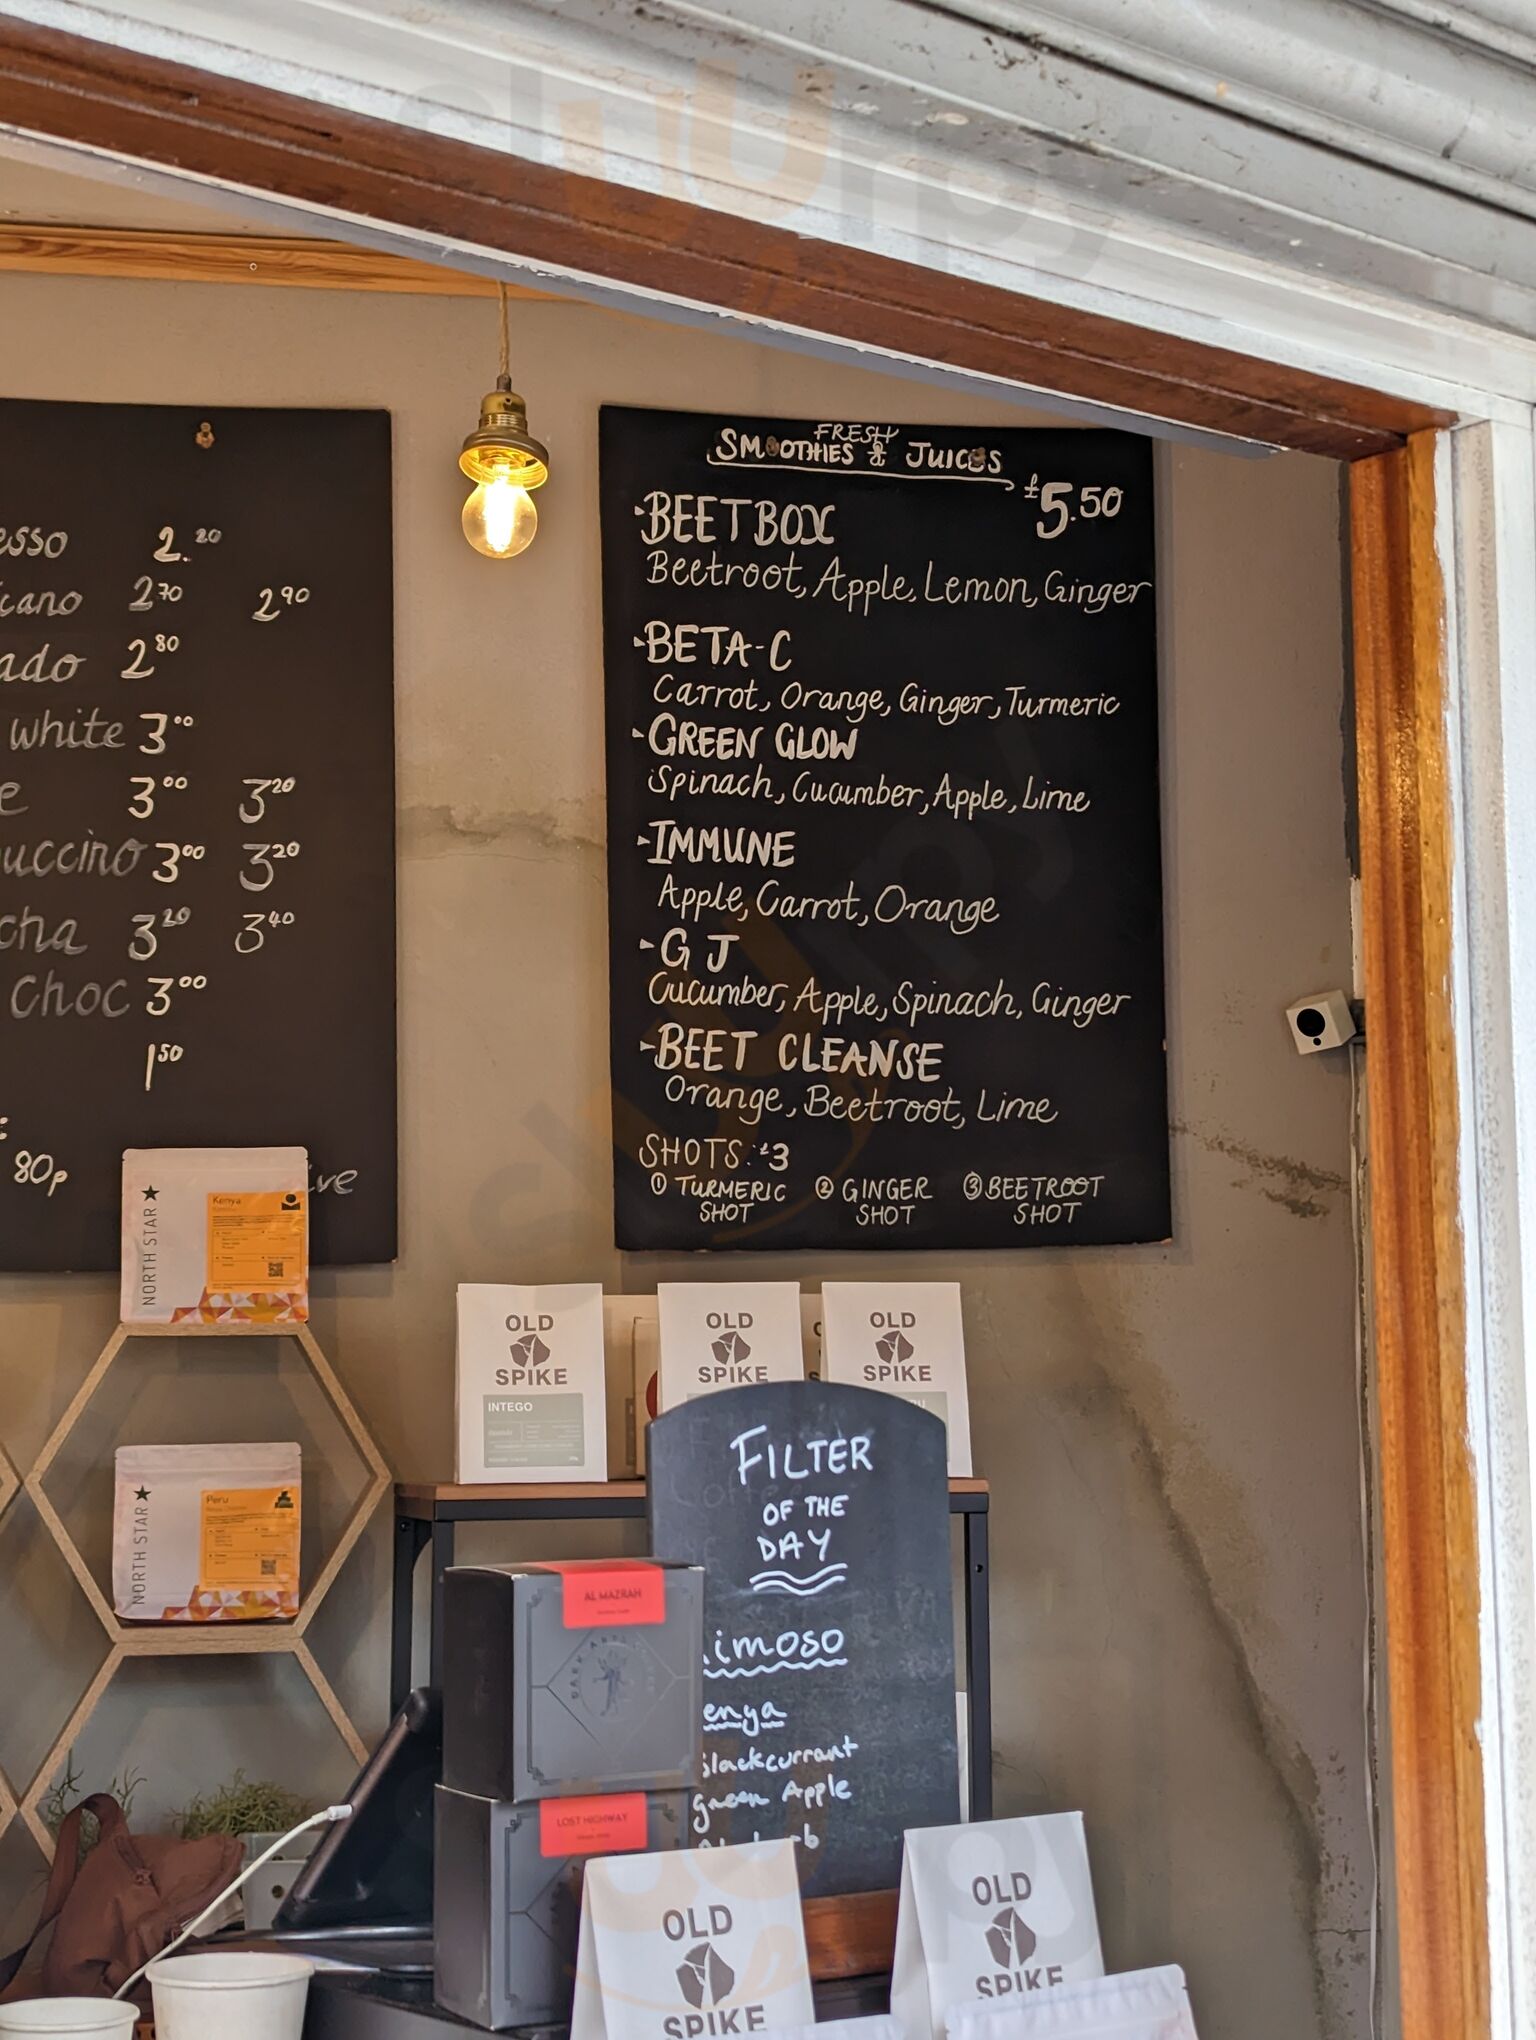 esso 2.20
cano 2.70 2.90
ado 2.80
white 3.00
e 3.00 3.20
uccino 3.00 3.20
cha 3.20 3.40
Choc 3.00
1.50
80p
FRESH
SMOOTHIES & JUICES
£5.50
BEETBOX
Beetroot, Apple, Lemon, Ginger
BETA-C
Carrot, Orange, Ginger, Turmeric
GREEN GLOW
Spinach, Cucumber, Apple, Lime
IMMUNE
Apple, Carrot, Orange
G J
Cucumber, Apple, Spinach, Ginger
BEET CLEANSE
Orange, Beetroot, Lime
SHOTS: £3
① TURMERIC SHOT ② GINGER SHOT ③ BEETROOT SHOT
NORTH STAR
Kenya
NORTH STAR
Peru
OLD
SPIKE
INTEGO
OLD
SPIKE
OLD
SPIKE
FILTER
OF THE
DAY
imoso
enya
Blackcurrant
green Apple
AL MAZRAH
LOST HIGHWAY
OLD
SPIKE
OLD
SPIKE